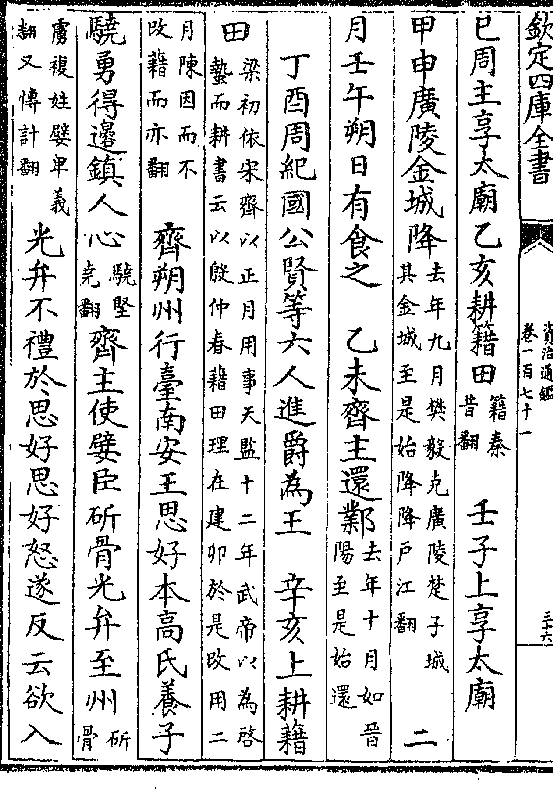 欽定四庫全書
資治通鑑
卷一百七十一
三六
巳周主享太廟乙亥耕籍田籍秦昔翻　壬子上享太廟
甲申廣陵金城降去年九月樊毅克廣陵楚子城其金城至是始降降戸江翻　二
月壬午朔日有食之　乙未齊主還鄴去年十月如晉陽至是始還
丁酉周紀國公賢等六人進爵為王　辛亥上耕籍
田梁初依宋齊以正月用事天監十二年武帝以為啓蟄而耕書云以殷仲春籍田理在建卯於是改用二
月陳因而不改籍而亦翻　齊朔州行臺南安王思好本高氏養子
驍勇得邊鎮人心驍堅堯翻齊主使嬖臣斫骨光弁至州斫骨
虜複姓嬖卑義翻又博計翻　光弁不禮於思好思好怒遂反云欲入